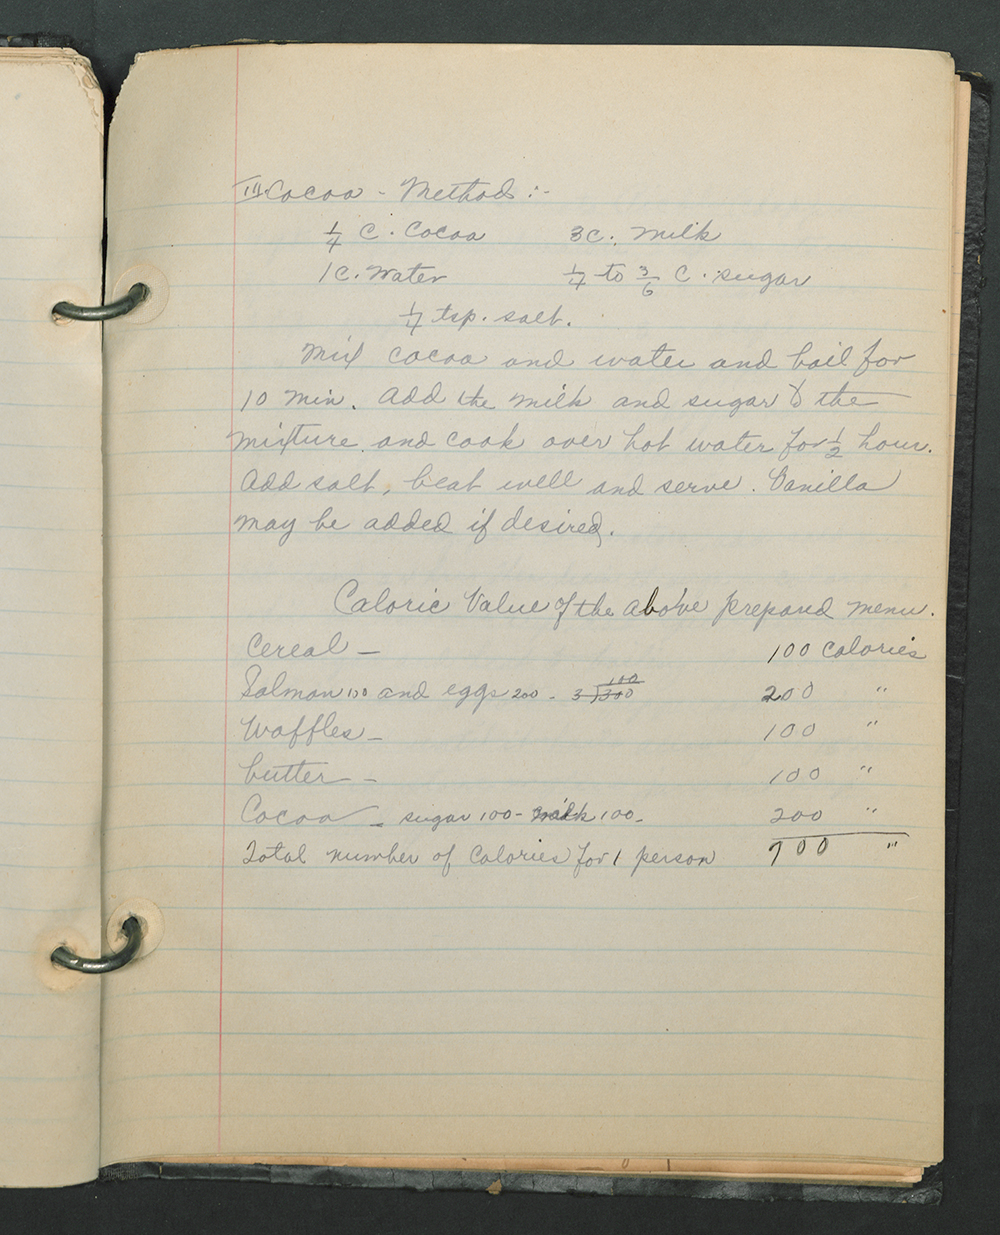 III. Cocoa - Method :-
1/4 C. Cocoa 3C. Milk
1C. Water 1/4 to 3/6 C. sugar
1/4 tsp. salt.
Mix cocoa and water and boil for
10 min. Add the milk and sugar to the
mixture and cook over hot water for 1/2 hour.
Add salt, beat well and serve. Vanilla
may be added if desired.
Caloric Value of the above prepared menu.
Cereal - 100 Calories
Salmon 100 and eggs 200 - 3)300 100 200 "
Waffles - 100 "
butter - 100 "
Cocoa - sugar 100 - milk 100 - 200 "
Total number of Calories for 1 person 700 "